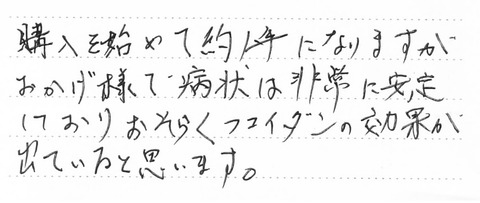 購入を始めて約1年になりますが
おかげ様で病状は非常に安定
しておりおそらくフコイダンの効果が
出ていると思います。